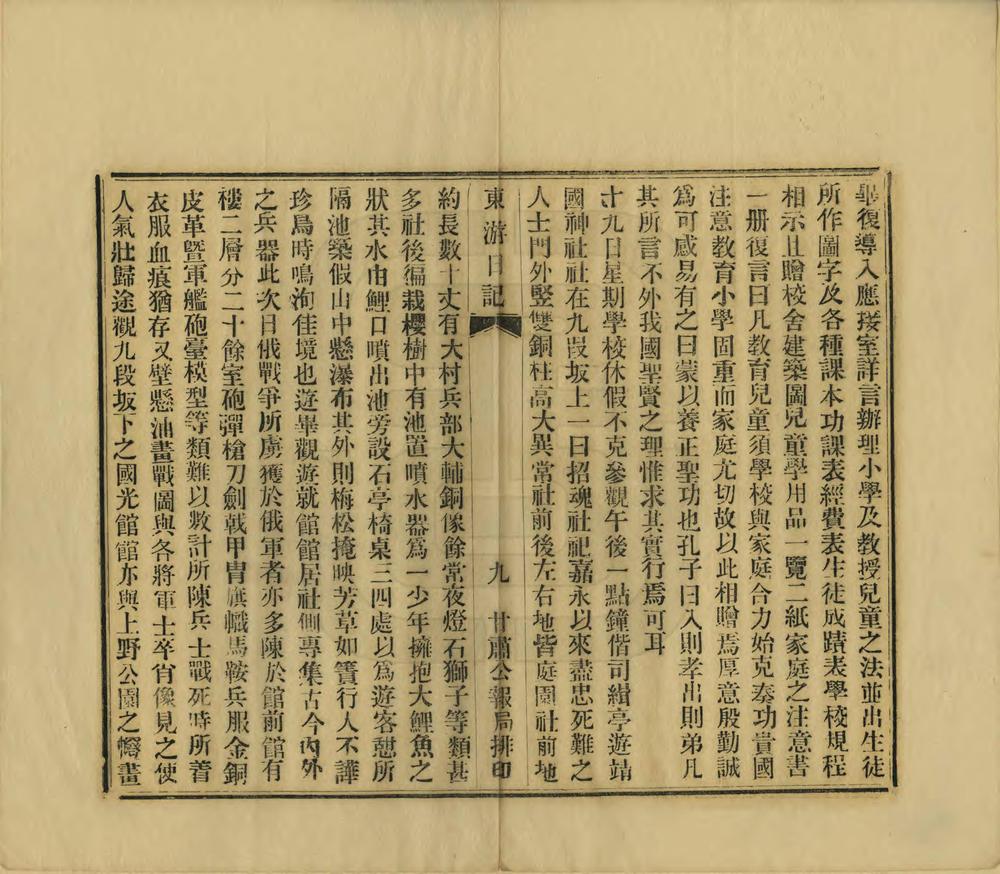 畢復導入應接室詳言辦理小學及教授兒童之法並出生徒
所作圖字及各種課本功課表經費表生徒成蹟表學校規程
相示且贈校舍建築圖兒童學用品一覽二紙家庭之注意書
一册復言曰凡教育兒童須學校與家庭合力始克奏功貴國
注意教育小學固重而家庭尤切故以此相贈焉厚意殷勤誠
爲可感易有之曰蒙以養正聖功也孔子曰入則孝出則弟凡
其所言不外我國聖賢之理惟求其實行焉可耳
十九日星期學校休假不克參觀午後一點鐘偕司緝亭遊靖
國神社社在九段坂上一曰招魂社祀嘉永以來盡忠死難之
人士門外竪雙銅柱高大異常社前後左右地皆庭園社前地
東游日記 九 甘肅公報局排印
約長數十丈有大村兵部大輔銅像餘常夜燈石獅子等類甚
多社後徧栽櫻樹中有池置噴水器爲一少年擁抱大鯉魚之
狀其水由鯉口噴出池旁設石亭椅桌三四處以爲遊客憩所
隔池築假山中懸瀑布其外則梅松掩映芳草如簀行人不譁
珍鳥時鳴洵佳境也遊畢觀遊就館館居社側專集古今內外
之兵器此次日俄戰爭所虜獲於俄軍者亦多陳於館前館有
樓二層分二十餘室砲彈槍刀劍戟甲胄旗幟馬鞍兵服金銅
皮革暨軍艦砲臺模型等類難以數計所陳兵士戰死時所着
衣服血痕猶存又壁懸油畫戰圖與各將軍士卒肖像見之使
人氣壯歸途觀九段坂下之國光館館亦與上野公園之幡畫